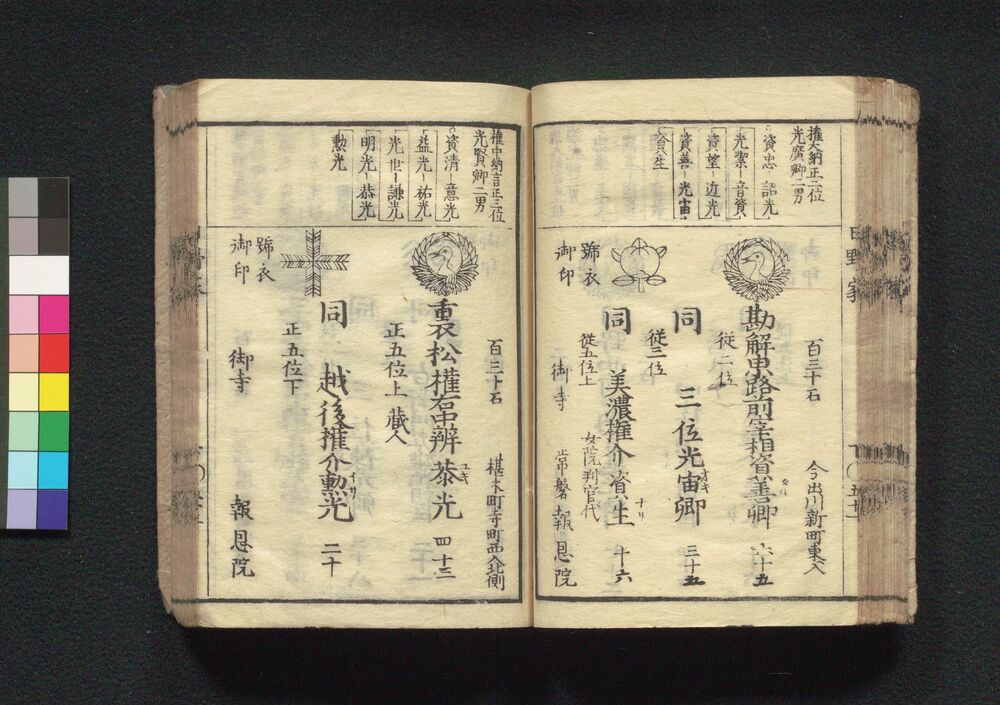 権大納正二位
光廣卿二男
資忠 詔光
光潔 音資
資望 近光
資善 光宙
資生
百三十石
今出川新町東入
勘解由路前宰相資善卿
六十五
従二位
同 三位光宙卿
オキ
三十五
従三位
同 美濃権介資生
ナリ
十六
従五位上
女院判官代
號衣
御印
御寺
常磐報恩院
日野家
権中納言正三位
光賢卿二男
資清 意光
益光 祐光
光世 謙光
明光 恭光
勲光
百三十石
椹木町寺町西入北側
裏松権右中辨恭光
ユキ
四十三
正五位上 蔵人
同 越後権介勲光
イサ
二十
正五位下
號衣
御印
御寺
報恩院